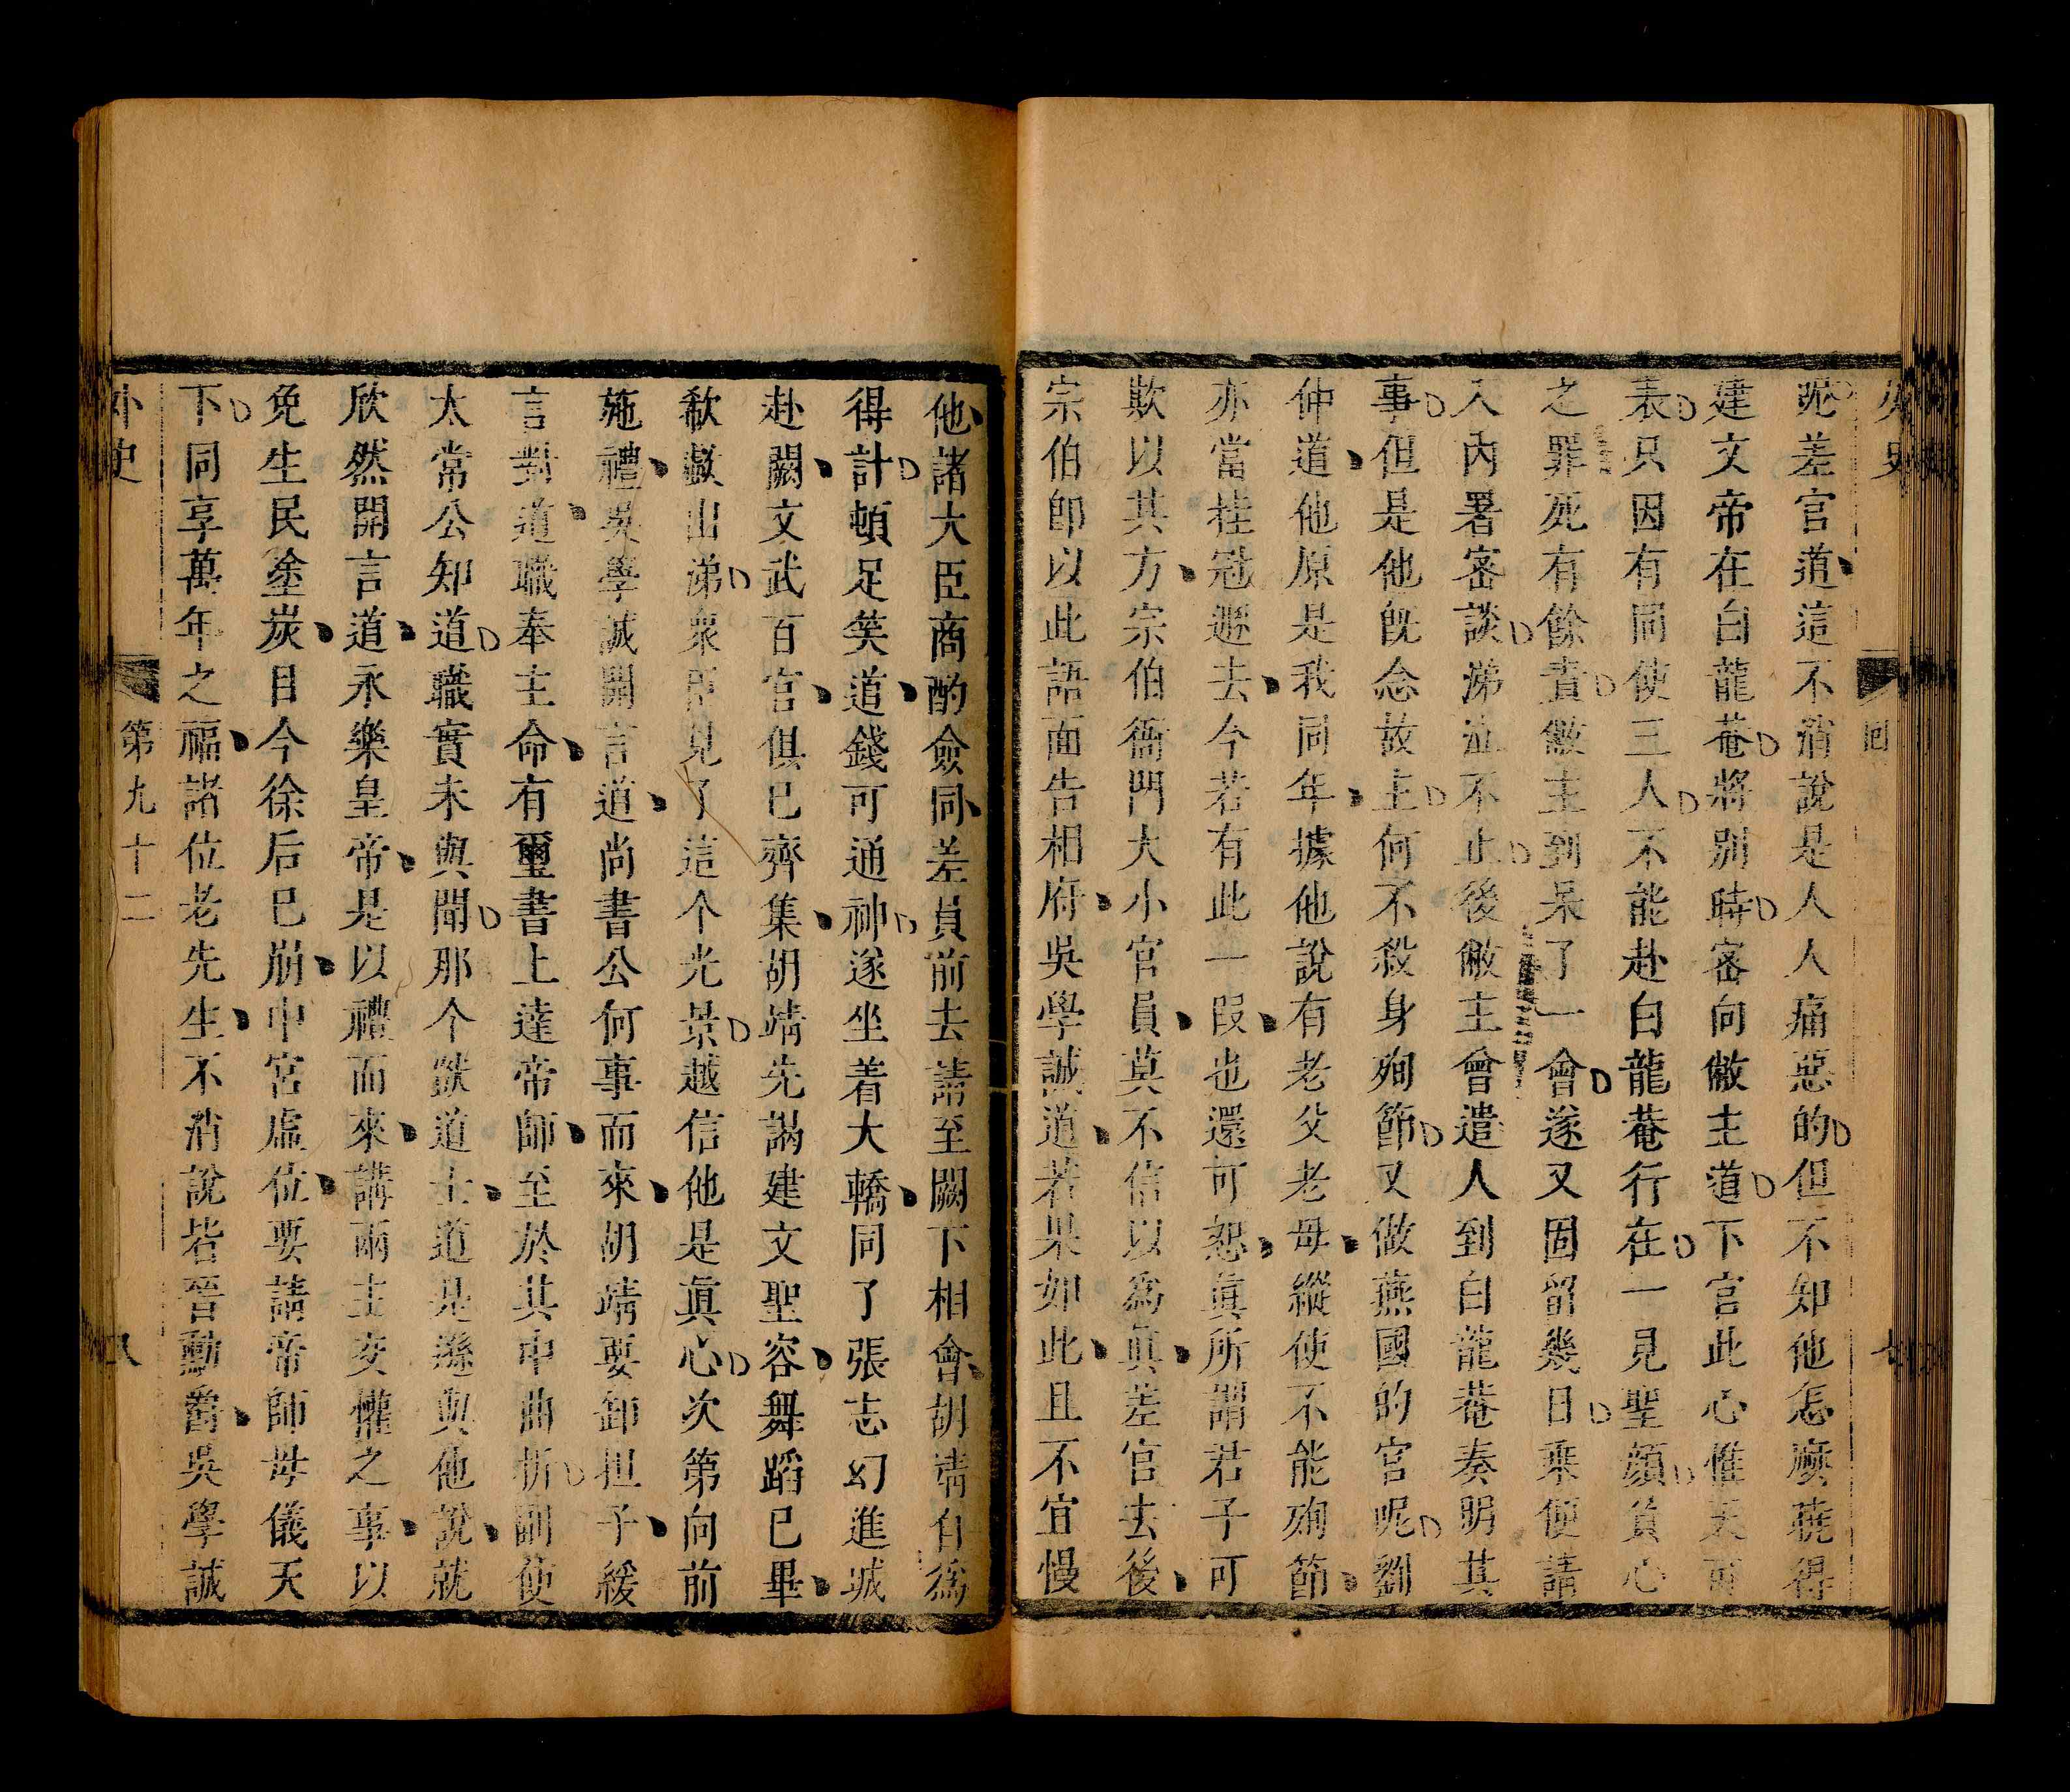 外史
回
七
呢差官道這不消說是人人痛惡的但不知他怎麽曉得
建文帝在白龍菴將別時密向敝主道下官此心惟天可
表只因有同使三人不能赴白龍菴行在一見聖顔負心
之罪死有餘責敝主到呆了一會遂又固留幾日乘便請
入內署密談涕泣不止後敝主曾遣人到白龍菴奏明其
事但是他旣念故主何不殺身殉節又做燕國的官呢劉
仲道他原是我同年據他說有老父老母縱使不能殉節
亦當挂冠遯去今若有此一叚也還可恕眞所謂君子可
欺以其方宗伯衙門大小官員莫不信以爲眞差官去後
宗伯卽以此語面告相府吳學誠道若果如此且不宜慢
他諸大臣商酌僉同差員前去請至闕下相會胡靖自爲
得計頓足笑道錢可通神遂坐着大轎同了張志幻進城
赴闕文武百官俱已齊集胡靖先謁建文聖容舞蹈已畢
欷歔出涕衆臣見了這个光景越信他是眞心次第向前
施禮吳學誠開言道尚書公何事而來胡靖要卸担子緩
言對道職奉主命有璽書上達帝師至於其中曲折副使
太常公知道職實未與聞那个獃道士道是遜與他說就
欣然開言道永樂皇帝是以禮而來講兩主交懽之事以
免生民塗炭目今徐后已崩中宮虛位要請帝師母儀天
下同享萬年之福諸位老先生不消說皆晉勳爵吳學誠
外史
第九十二
八